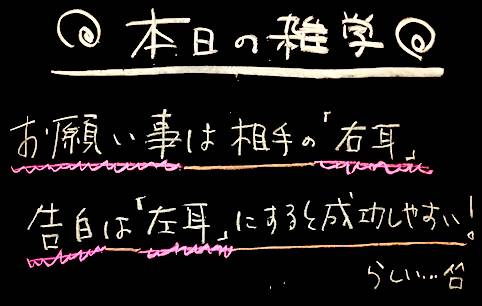 本日の雑学
お願い事は相手の「右耳」
告白は「左耳」にすると成功しやすい!
らしい…笑